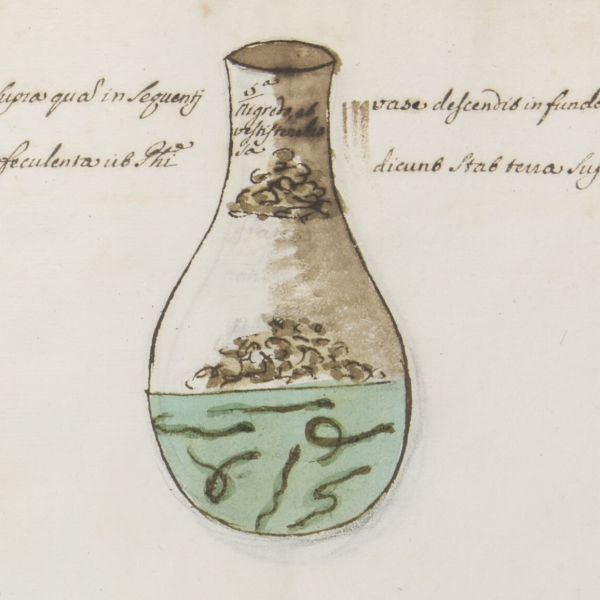 supra quas in sequenti vase descendit in fundo
feculenta ut Phi dicunt stat terra sup
5a
nigredo et